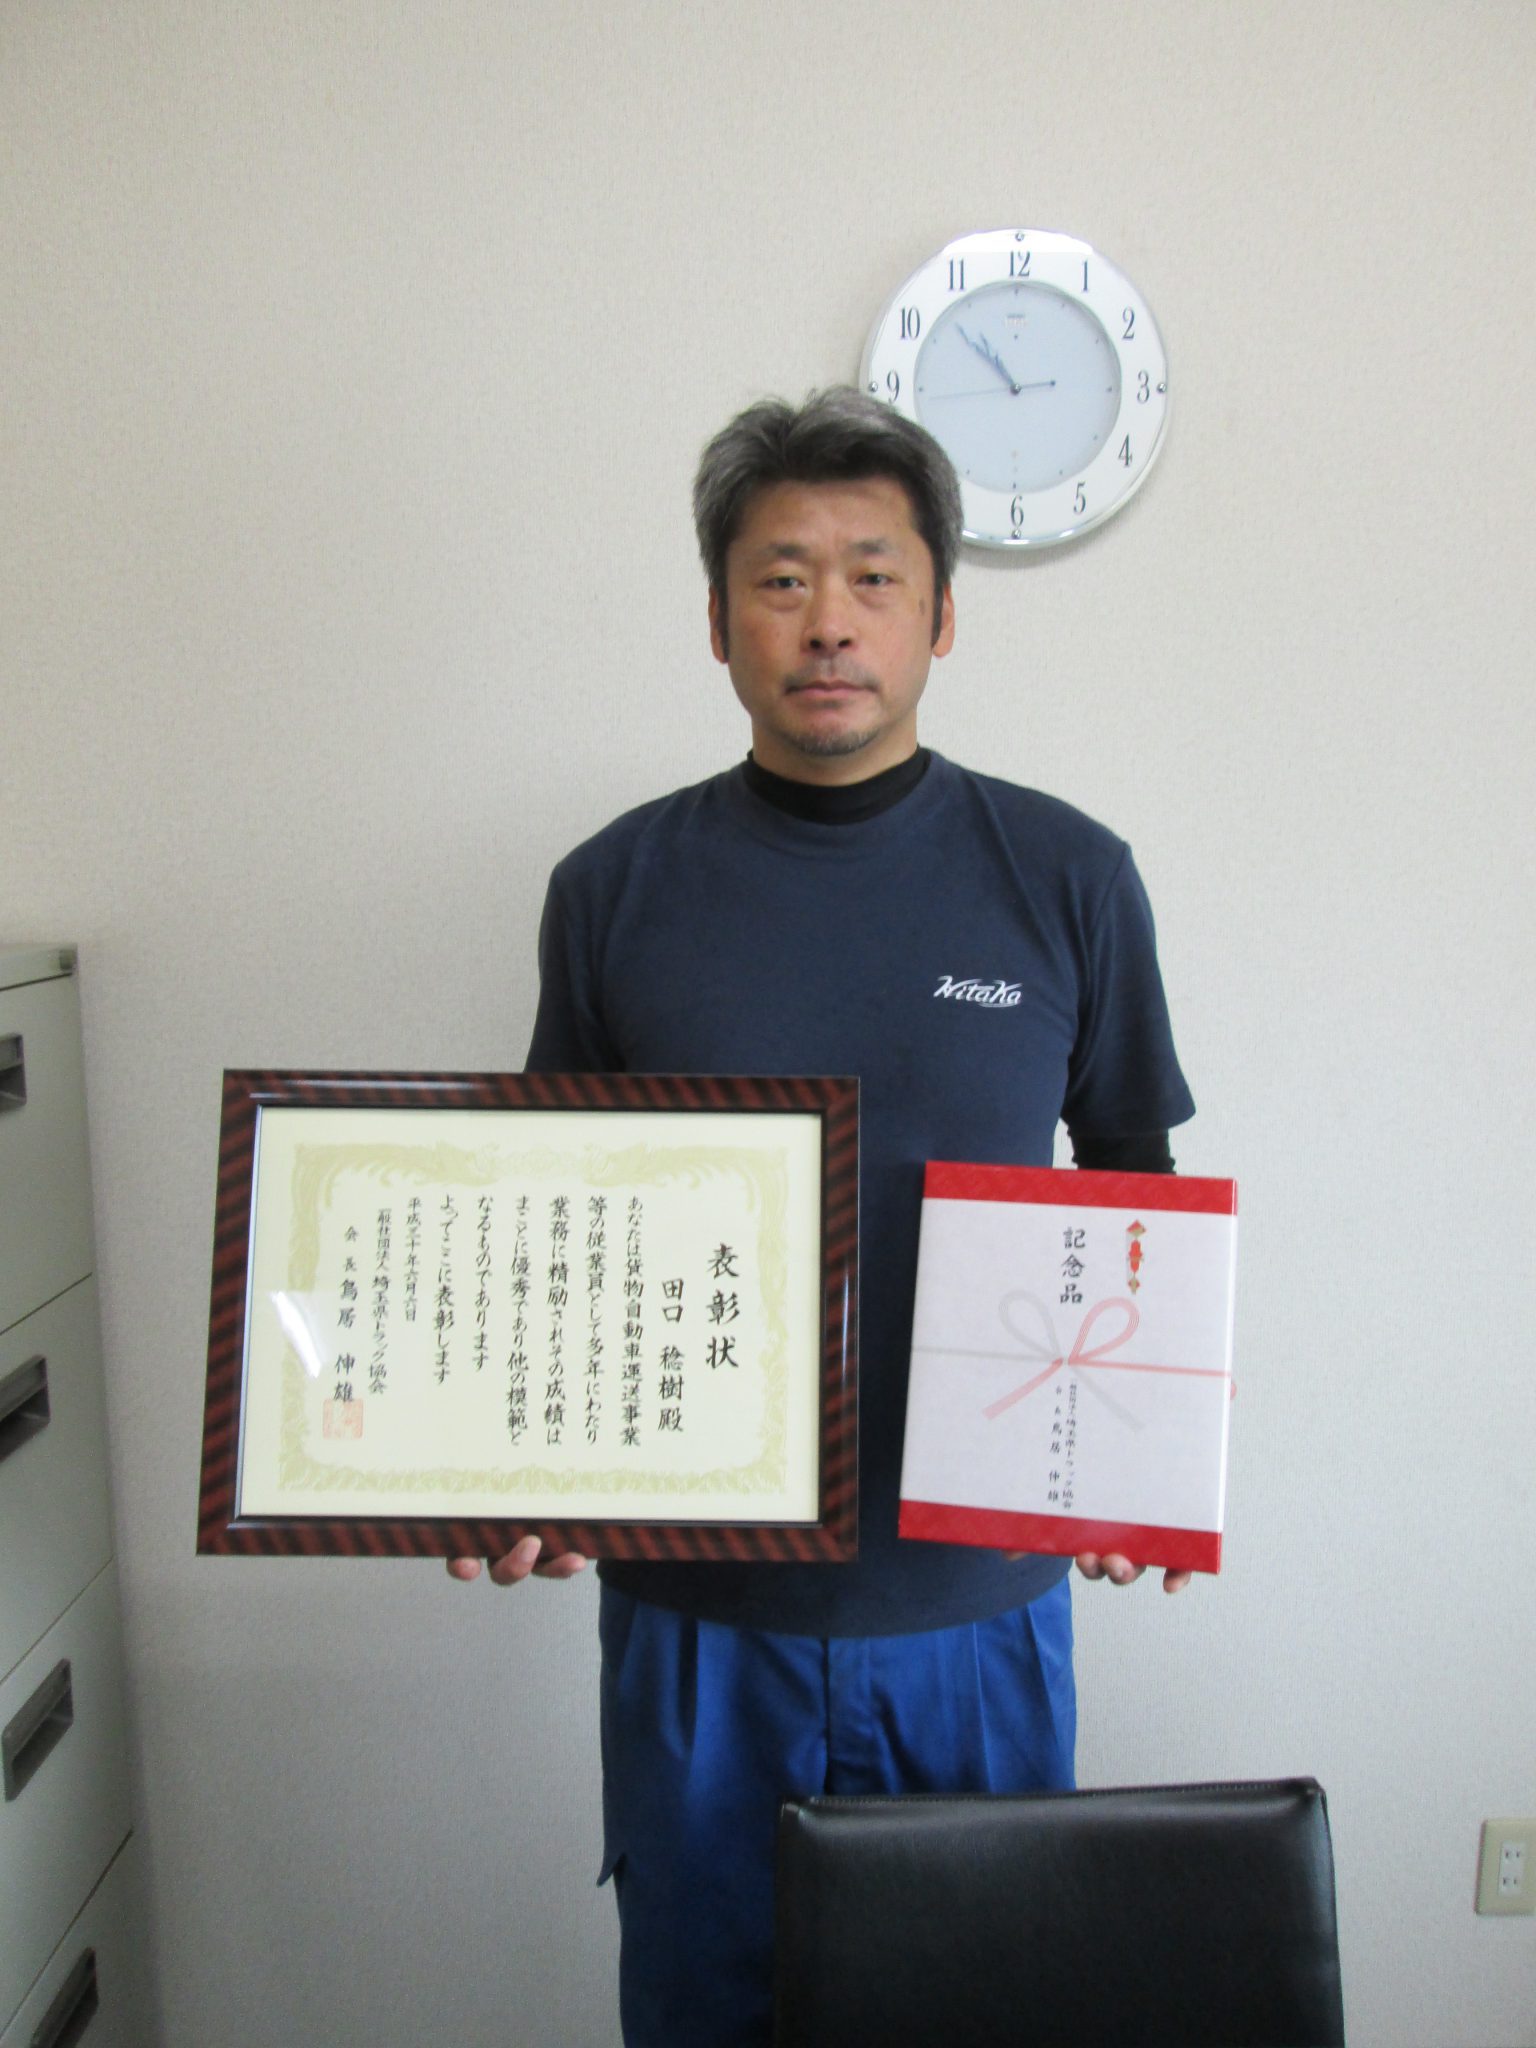 12
1
2
3
4
5
6
9
10
11
Hitaka
表彰状
田口 稔樹 殿
あなたは貨物自動車運送事業
等の従業員として多年にわたり
業務に精励されその成績は
まことに優秀であり他の模範と
なるものであります
よってここに表彰します
平成三十年六月六日
一般社団法人 埼玉県トラック協会
会長 鳥居 伸雄
記念品
一般社団法人 埼玉県トラック協会
会長 鳥居 伸雄